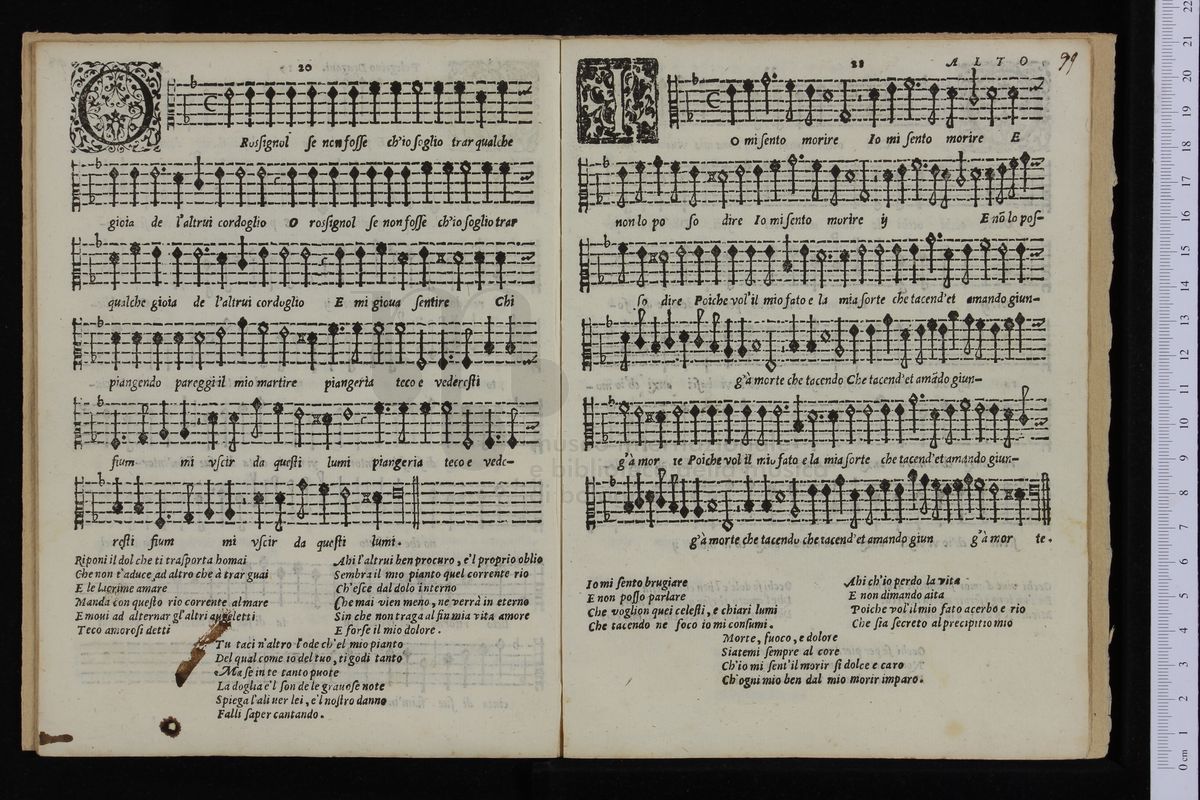 20
O
Rossignol se non fosse ch'io soglio trar qualche
gioia de l'altrui cordoglio O rossignol se non fosse ch'io soglio trar
qualche gioia de l'altrui cordoglio E mi gioua sentire Chi
piangendo pareggi il mio martire piangeria teco e vederesti
fium- mi vscir da questi lumi piangeria teco e vede-
resti fium mi vscir da questi lumi.
Riponi il dol che ti trasporta homai
Che non t'aduce, ad altro che à trar guai
E le lacrime amare
Manda con questo rio corrente al mare
E moui ad alternar gl'altri augeletti
Teco amorosi detti
Ahi l'altrui ben procuro, e'l proprio oblio
Sembra il mio pianto quel corrente rio
Ch'esce dal dolo interno
Che mai vien meno, ne verrà in eterno
Sin che non traga al fin mia vita amore
E forse il mio dolore.
Tu taci n'altro l'ode ch'el mio pianto
Del qual come io del tuo, ti godi tanto
Ma se in te tanto puote
La doglia e'l son de le grauose note
Spiega l'ali uer lei, e'l nostro danno
Falli saper cantando.
21
ALTO.
99
I
O mi sento morire Io mi sento morire E
non lo po so dire Io mi sento morire ij E nō lo pos-
so dire Poiche vol'il mio fato e la mia sorte che tacend'et amando giun-
g'à morte che tacendo Che tacend'et amādo giun-
g'à mor te Poiche vol il mio fato e la mia sorte che tacend'et amando giun-
g'à morte che tacendo che tacend'et amando giun g'à mor te.
Io mi sento brugiare
E non posso parlare
Che voglion quei celesti, e chiari lumi
Che tacendo ne foco io mi consumi.
Ahi ch'io perdo la vita
E non dimando aita
Poiche vol'il mio fato acerbo e rio
Che sia secreto al precipitio mio
Morte, fuoco, e dolore
Siatemi sempre al core
Ch'io mi sent'il morir si dolce e caro
Ch'ogni mio ben dal mio morir imparo.